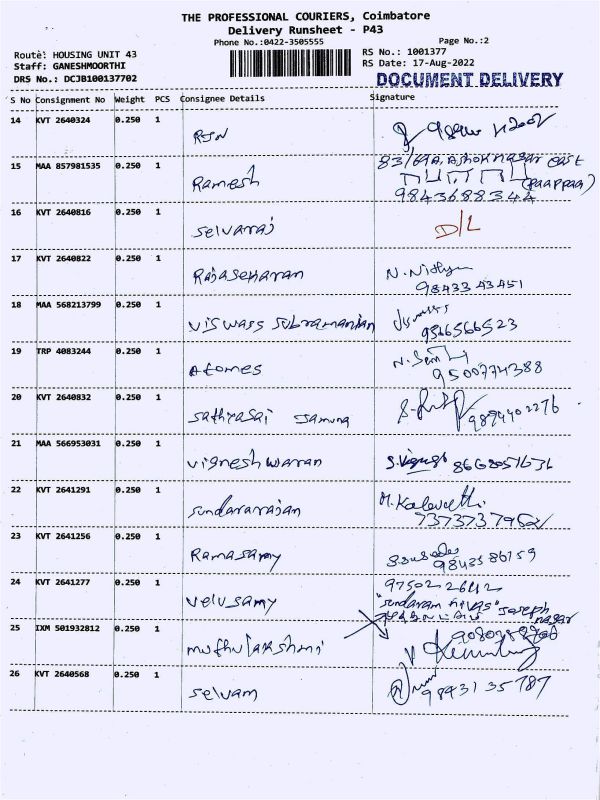 THE PROFESSIONAL COURIERS, Coimbatore
Delivery Runsheet - P43
Phone No.:0422-3505555
Page No.:2
Route: HOUSING UNIT 43
RS No.: 1001377
Staff: GANESHMOORTHI
RS Date: 17-Aug-2022
DRS No.: DCJB100137702
DOCUMENT DELIVERY
S No Consignment No Weight PCS Consignee Details Signature
14 KVT 2640324 0.250 1 RJN
83/69A. Ashok nagar east
15 MAA 857981535 0.250 1 Ramesh (paappaa)
9843688344
16 KVT 2640816 0.250 1 selvaraj D/L
17 KVT 2640822 0.250 1 Rajasekaran N. Nithya
98433 43451
18 MAA 568213799 0.250 1 viswass subramanian
9566566523
19 TRP 4083244 0.250 1 Atomes
9500774388
20 KVT 2640832 0.250 1 sathyasai Jamuna 9894402276
21 MAA 566953031 0.250 1 vigneshwaran 8668051631
22 KVT 2641291 0.250 1 sundararajan M. Kalavathi
7373737952
23 KVT 2641256 0.250 1 Ramasamy
9843586759
24 KVT 2641277 0.250 1 velusamy 97502 22642
"sundaram nivas" Joseph nagar
25 IXM 501932812 0.250 1 muthulakshmi
26 KVT 2640568 0.250 1 selvam 98431 35787